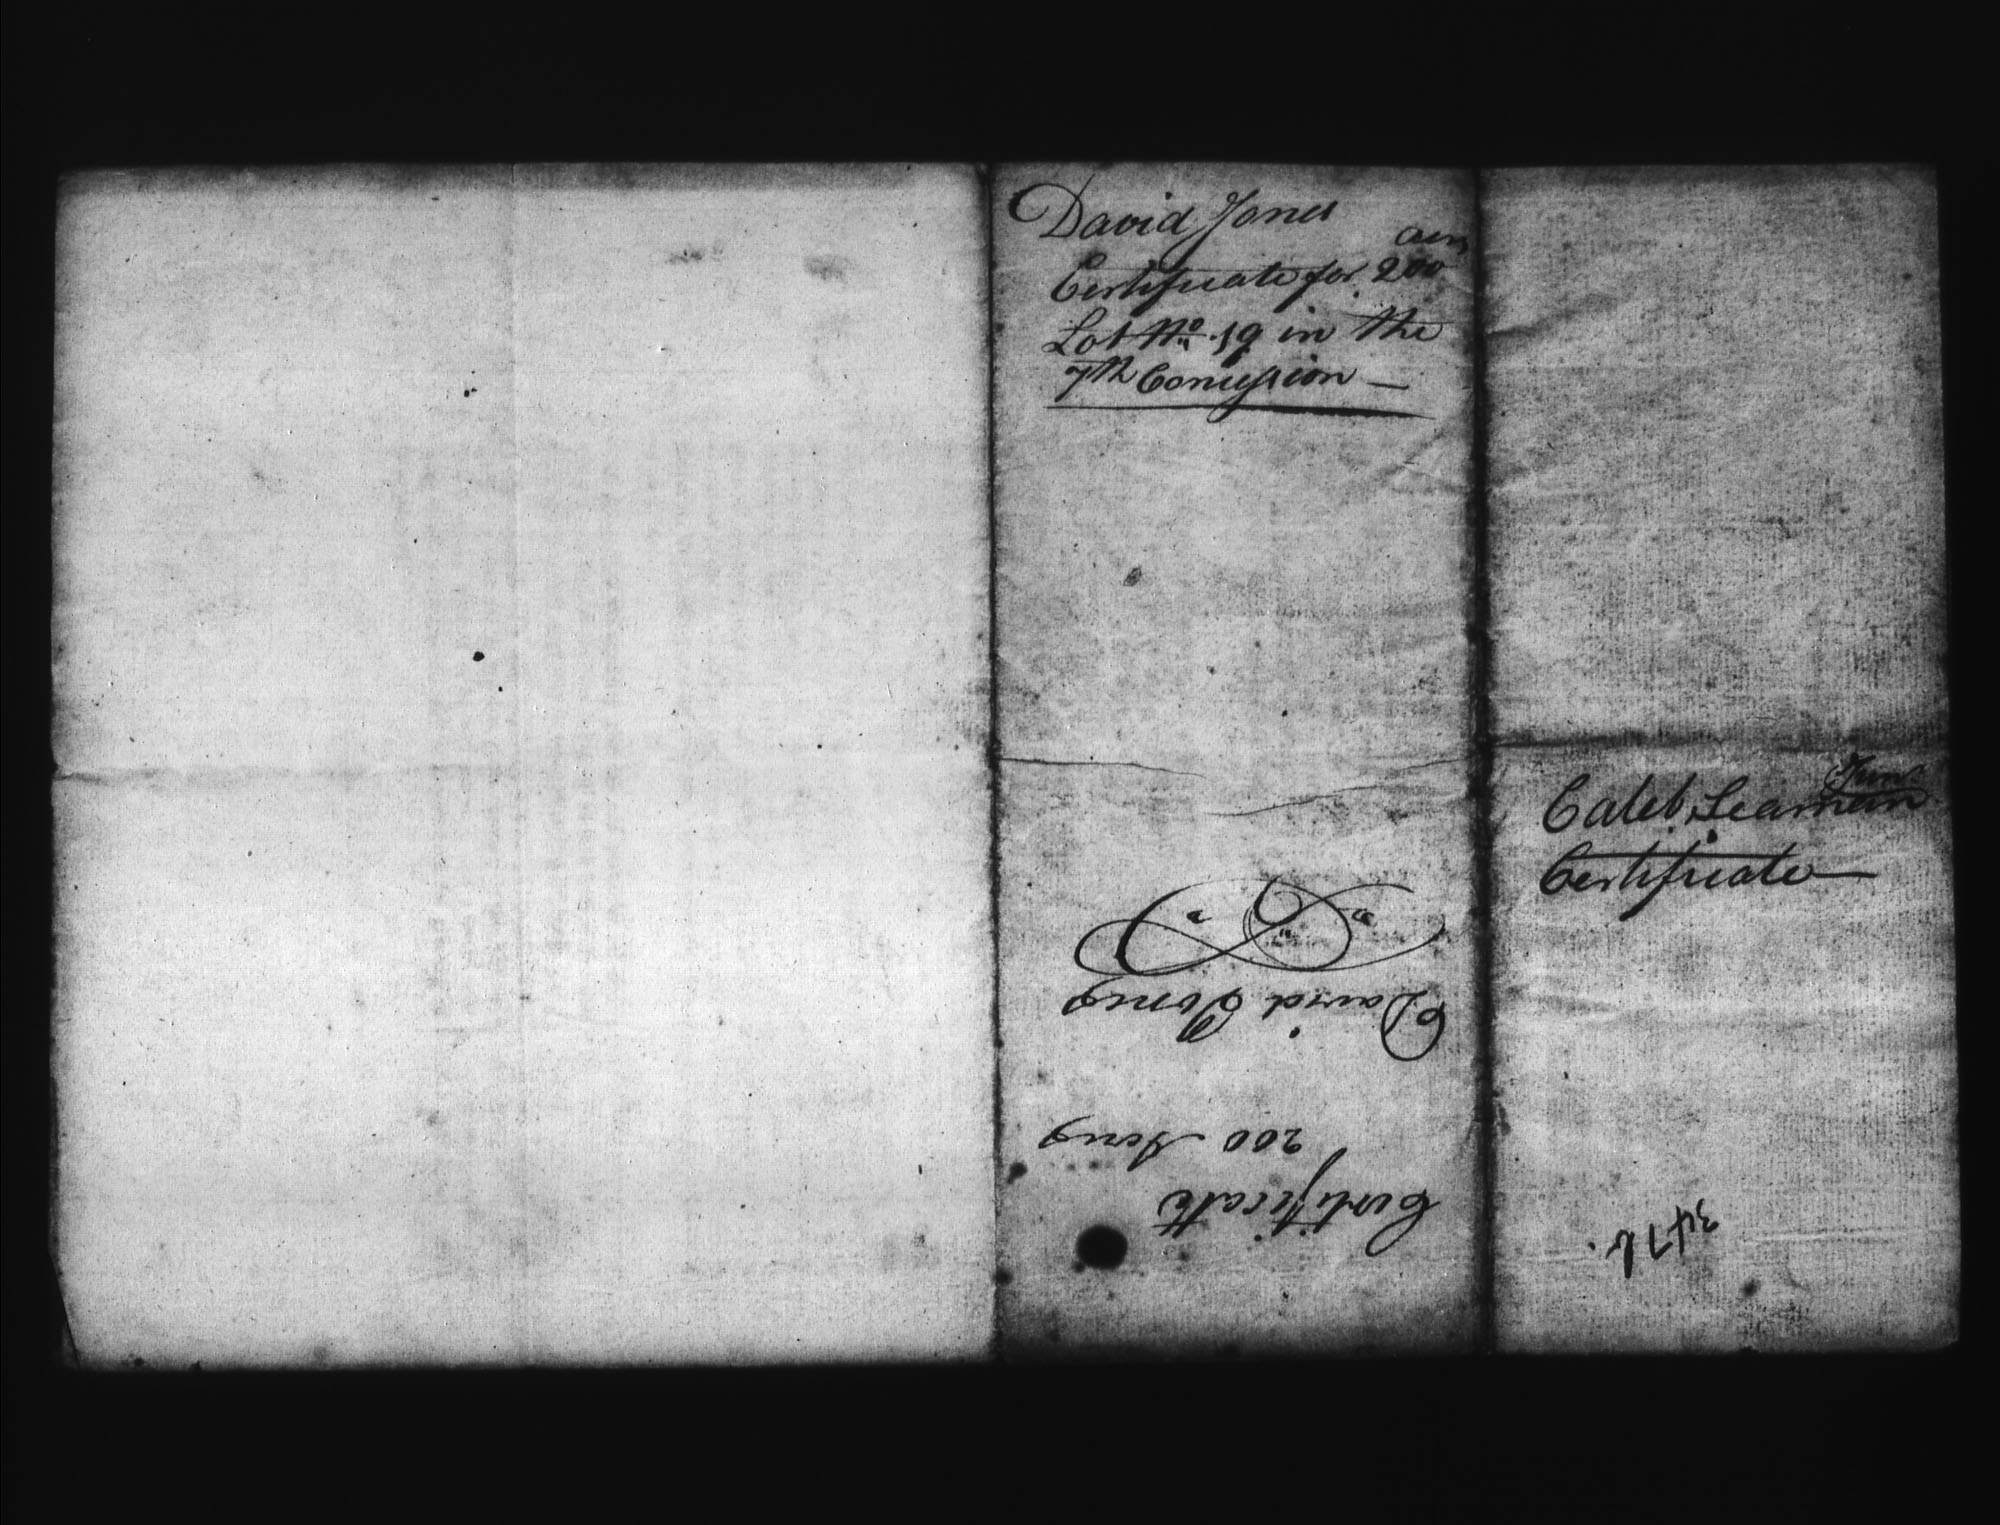 David Jones
Certificate for 200 acres
Lot No 19 in the
7th Concession —
David Jones
200 Acres
Certificate
Caleb Seaman Junr
Certificate —